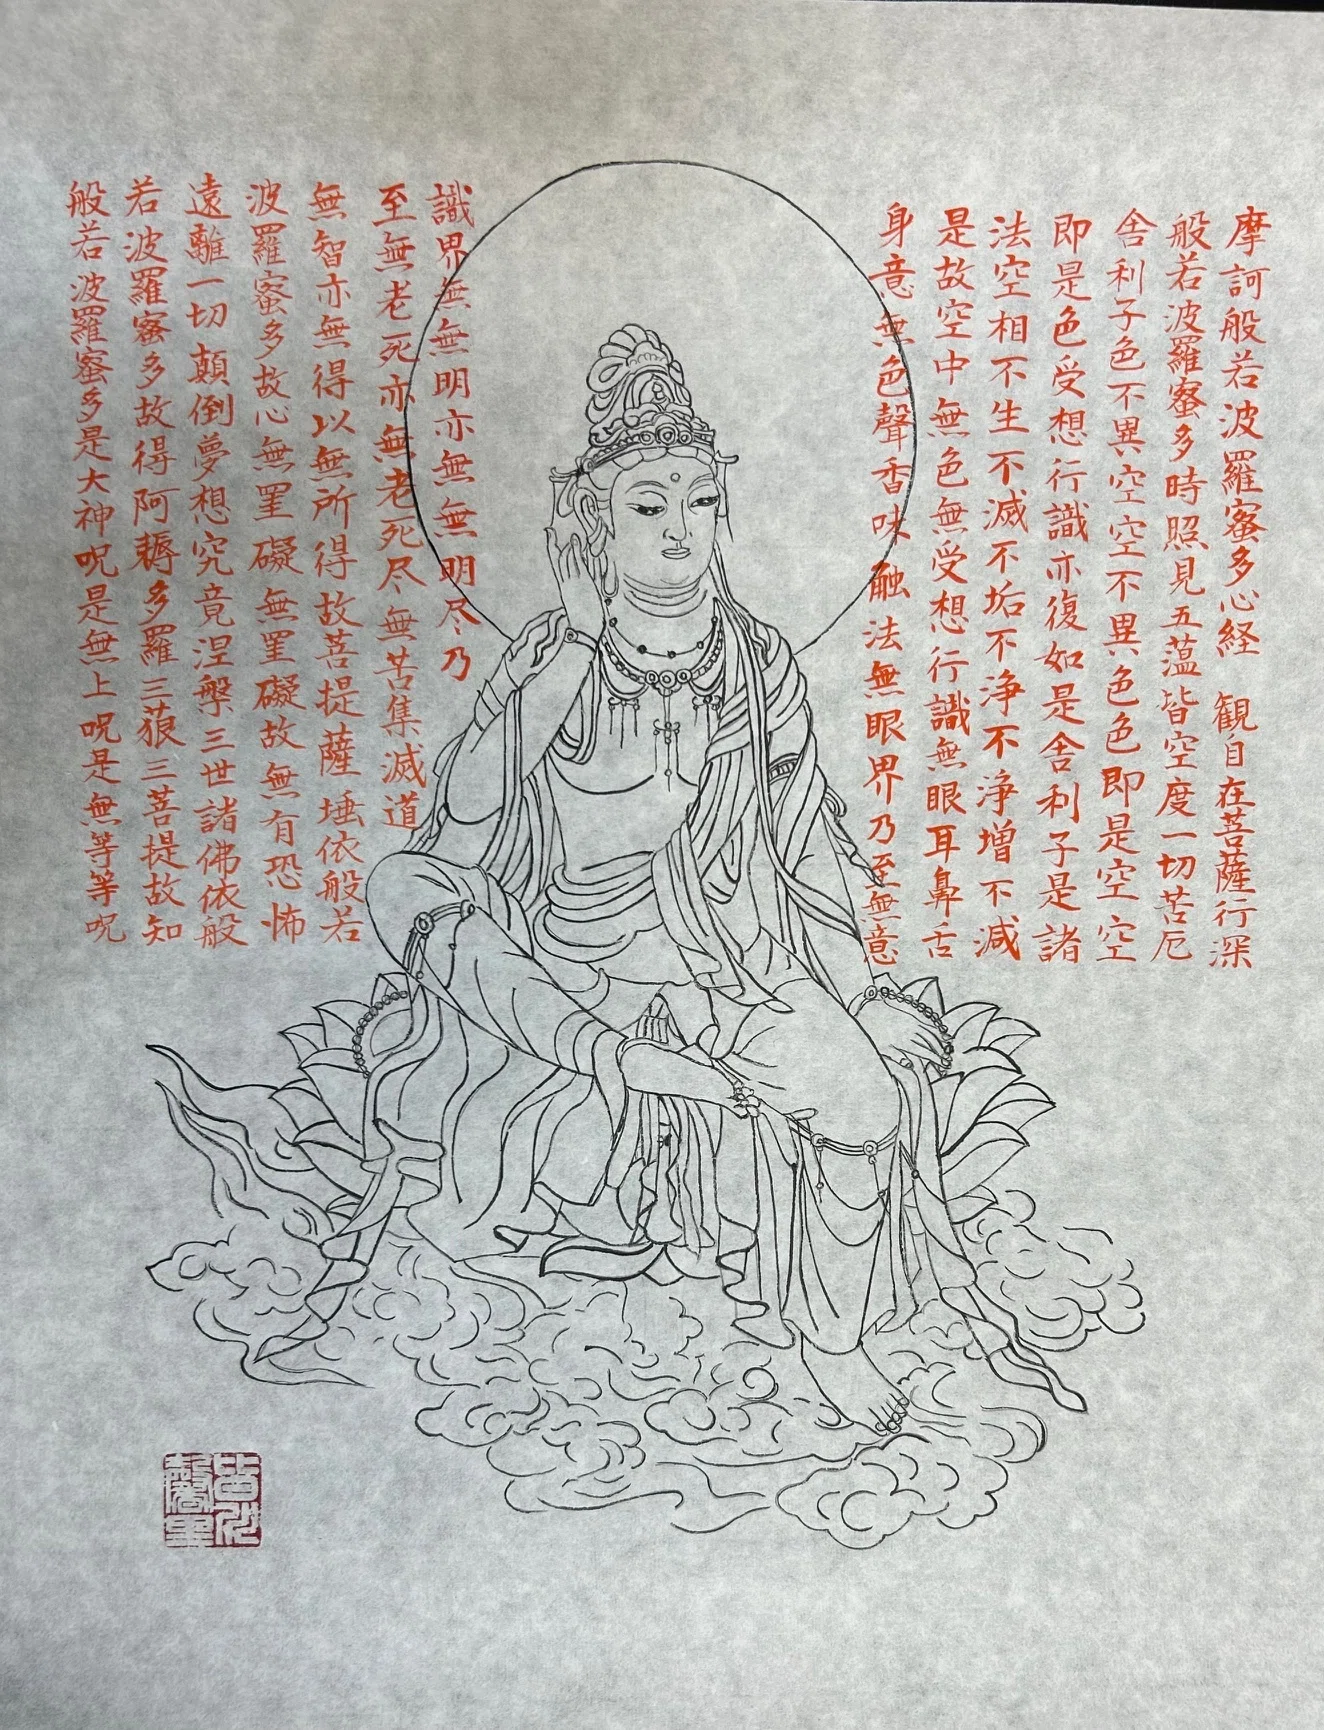 摩訶般若波羅蜜多心経 観自在菩薩行深
般若波羅蜜多時照見五薀皆空度一切苦厄
舎利子色不異空空不異色色即是空空
即是色受想行識亦復如是舎利子是諸
法空相不生不滅不垢不浄不浄増不減
是故空中無色無受想行識無眼耳鼻舌
身意無色聲香味触法無眼界乃至無意
識界無無明亦無無明尽乃
至無老死亦無老死尽無苦集滅道
無智亦無得以無所得故菩提薩埵依般若
波羅蜜多故心無罣礙無罣礙故無有恐怖
遠離一切顛倒夢想究竟涅槃三世諸佛依般
若波羅蜜多故得阿耨多羅三藐三菩提故知
般若波羅蜜多是大神呪是無上呪是無等等呪